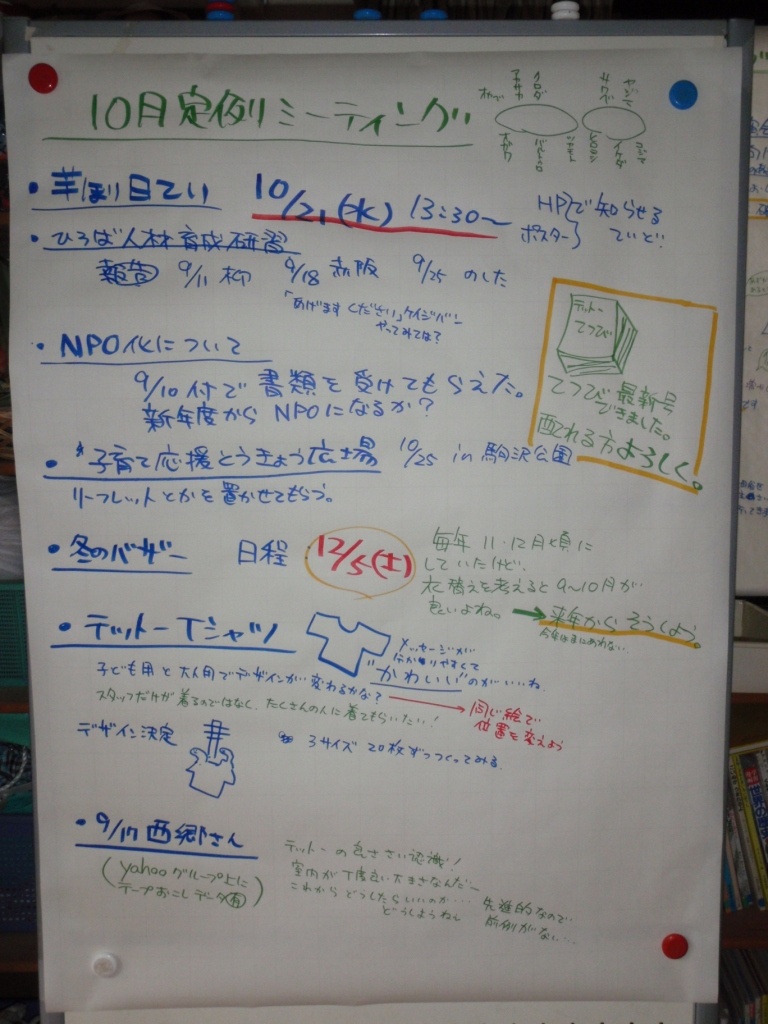 10月定例ミーティング
・芋ほり日てい 10/21(水) 13:30〜
HP
ポスター
で知らせる
ていど!
・ひろば人材育成研修
報告 9/11 柳 9/18 赤阪 9/25 のした
「あげます ください」ケイジバン
やってみては?
テットー
てつびん
てつびん 最新号
できました。
配れる方よろしく。
・NPO化について
9/10付で書類を受けてもらえた。
新年度からNPOになるか?
・子育て応援とうきょう広場 10/25 in 駒沢公園
リーフレットとかを置かせてもらう。
・冬のバザー 日程 12/5(土)
毎年 11・12月頃に
していたけど、
衣替えを考えると9〜10月が
良いよね。
→来年からそうしよう。
今年はまにあわない…
・テットーTシャツ
メッセージが
分かりやすくて
"かわいい"のがいいね
子ども用と大人用でデザインが変わるかな?
スタッフだけが着るのではなく、たくさんの人に着てもらいたい!
→同じ絵で
位置を変えよう
デザイン決定
3サイズ 20枚ずつつくってみる。
・9/17 西郷さん
(yahooグループ上に
テープおこしデータ有)
テットーの良さ再認識!
室内が丁度良い大きさなんだ〜
これから どうしたらいいのか…
どうしようねぇ
先進的なので
前例がない…